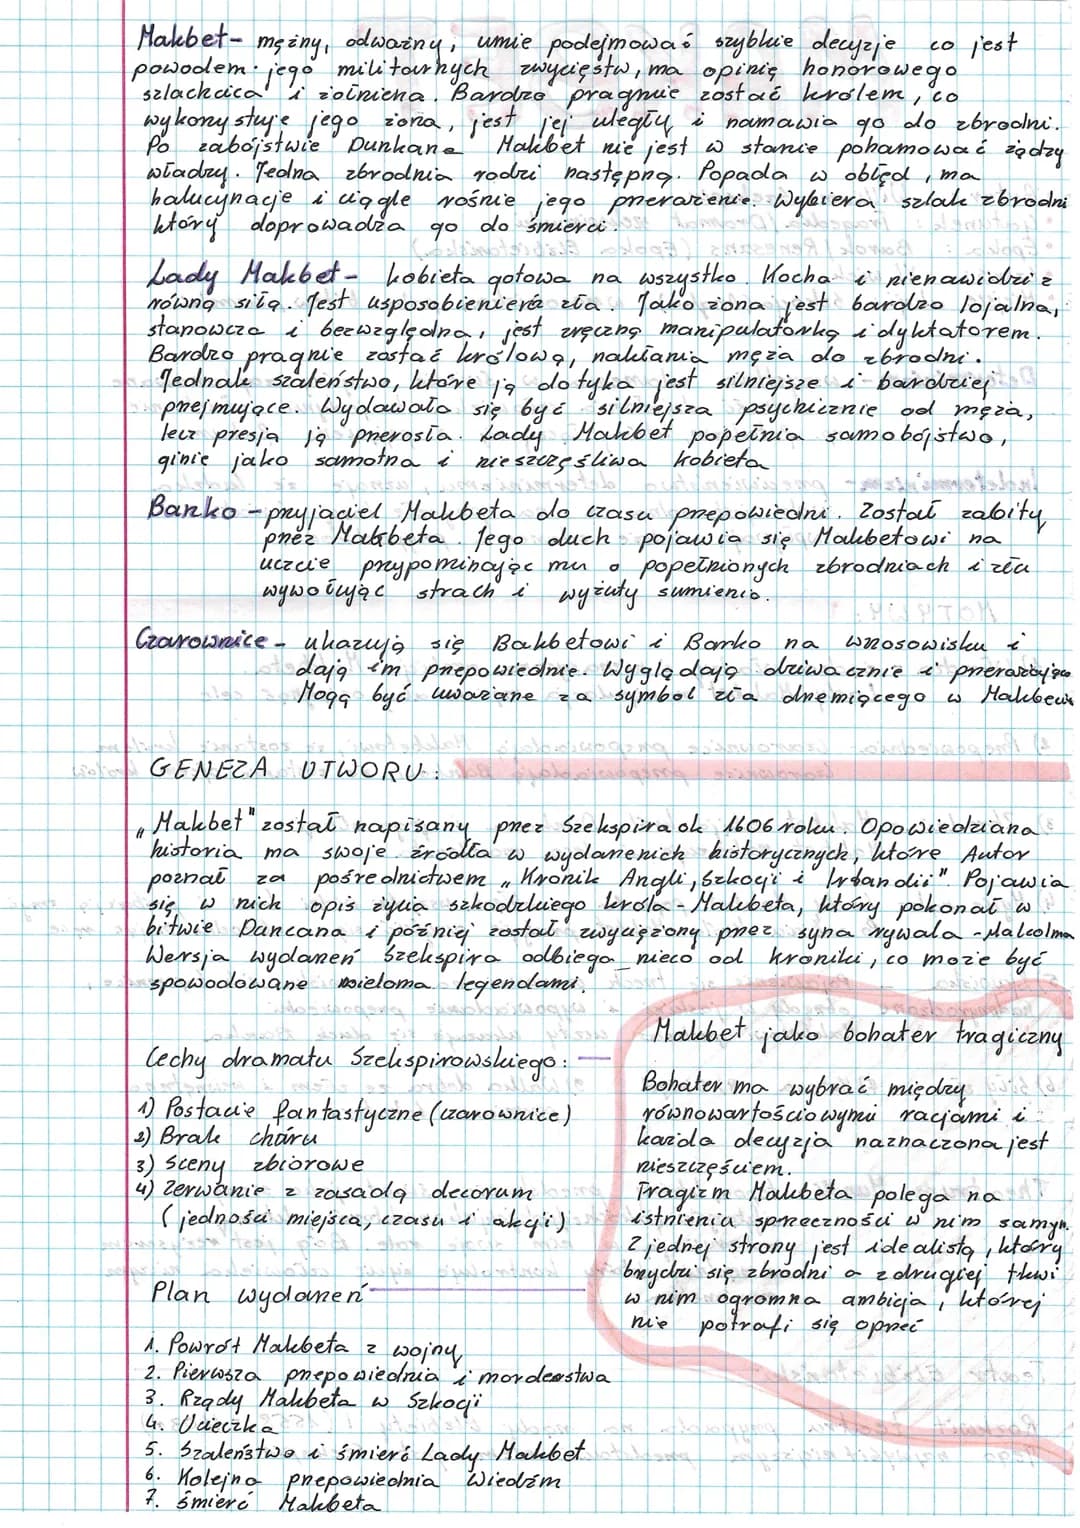 Makbet - mężny, odważny, umie podejmować szybkie decyzje co jest
powodem jego militarnych zwycięstw, ma opinię honorowego
szlachcica i żołnierza. Bardzo pragnie zostać królem, co
wykorzystuje jego żona, jest jej uległy i namawia go do zbrodni.
Po zabójstwie Dunkana Makbet nie jest w stanie pohamować żądzy
władzy. Jedna zbrodnia rodzi następną. Popada w obłęd, ma
halucynacje i ciągle rośnie jego przerażenie. Wybiera szlak zbrodni
który doprowadza go do śmierci.
Lady Makbet - kobieta gotowa na wszystko. Kocha i nienawidzi z
równą siłą. Jest usposobieniem zła. Jako żona jest bardzo lojalna,
stanowcza i bezwzględna, jest zręczną manipulatorką i dyktatorem.
Bardzo pragnie zostać królową, nakłania męża do zbrodni.
Jednak szaleństwo, które ją dotyka jest silniejsze i bardziej
przejmujące. Wydawała się być silniejsza psychicznie od męża,
lecz presja ją przerosła. Lady Makbet popełnia samobójstwo,
ginie jako samotna i nieszczęśliwa kobieta
Banko - przyjaciel Makbeta do czasu przepowiedni. Został zabity
przez Makbeta. Jego duch pojawia się Makbetowi na
uczcie przypominając mu o popełnionych zbrodniach i złu
wywołując strach i wyżuty sumienia.
Czarownice - ukazują się Bakbetowi i Banko na wrzosowisku i
dają im przepowiednie. Wyglądają dziwacznie i przerażająco
Mogą być uważane za symbol zła drzemiącego w Makbecie
GENEZA UTWORU:
„Makbet" został napisany przez Szekspira ok 1606 roku. Opowiedziana
historia ma swoje źródła w wydarzeniach historycznych, które Autor
poznał za pośrednictwem „Kronik Angli, Szkocji i Irlandii". Pojawia
się w nich opis życia szkodzkiego króla - Makbeta, który pokonał w
bitwie Dancana i później został zwyciężony przez syna rywala - Malcolma
Wersja wydarzeń Szekspira odbiega nieco od kroniki, co może być
spowodowane wieloma legendami.
Cechy dramatu Szekspirowskiego:
1) Postacie fantastyczne (czarownice)
2) Brak chóru
3) Sceny zbiorowe
4) Zerwanie z zasadą decorum
(jedności miejsca, czasu i akcji)
Plan wydarzeń
1. Powrót Makbeta z wojny
2. Pierwsza przepowiednia i morderstwa
3. Rządy Makbeta w Szkocji
4. Ucieczka
5. Szaleństwo i śmierć Lady Makbet
6. Kolejna przepowiednia Wiedźm
7. Śmierć Makbeta
Makbet jako bohater tragiczny
Bohater ma wybrać między
równowartościowymi racjami i
każda decyzja naznaczona jest
nieszczęściem.
Tragizm Makbeta polega na
istnienia sprzeczności w nim samym.
Z jednej strony jest idealistą, który
brzydzi się zbrodni a z drugiej tkwi
w nim ogromna ambicja, której
nie potrafi się oprzeć